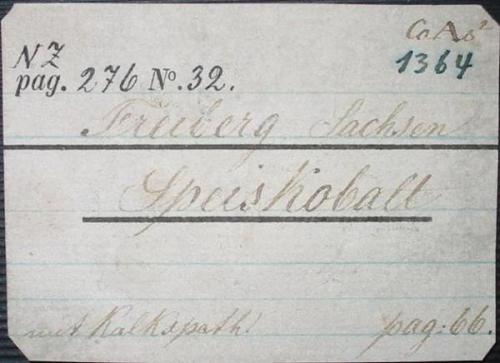 CoAs²
NZ
1364
pag. 276 No. 32.
Freiberg Sachsen
Speiskobalt
mit Kalkspath! pag: 66.